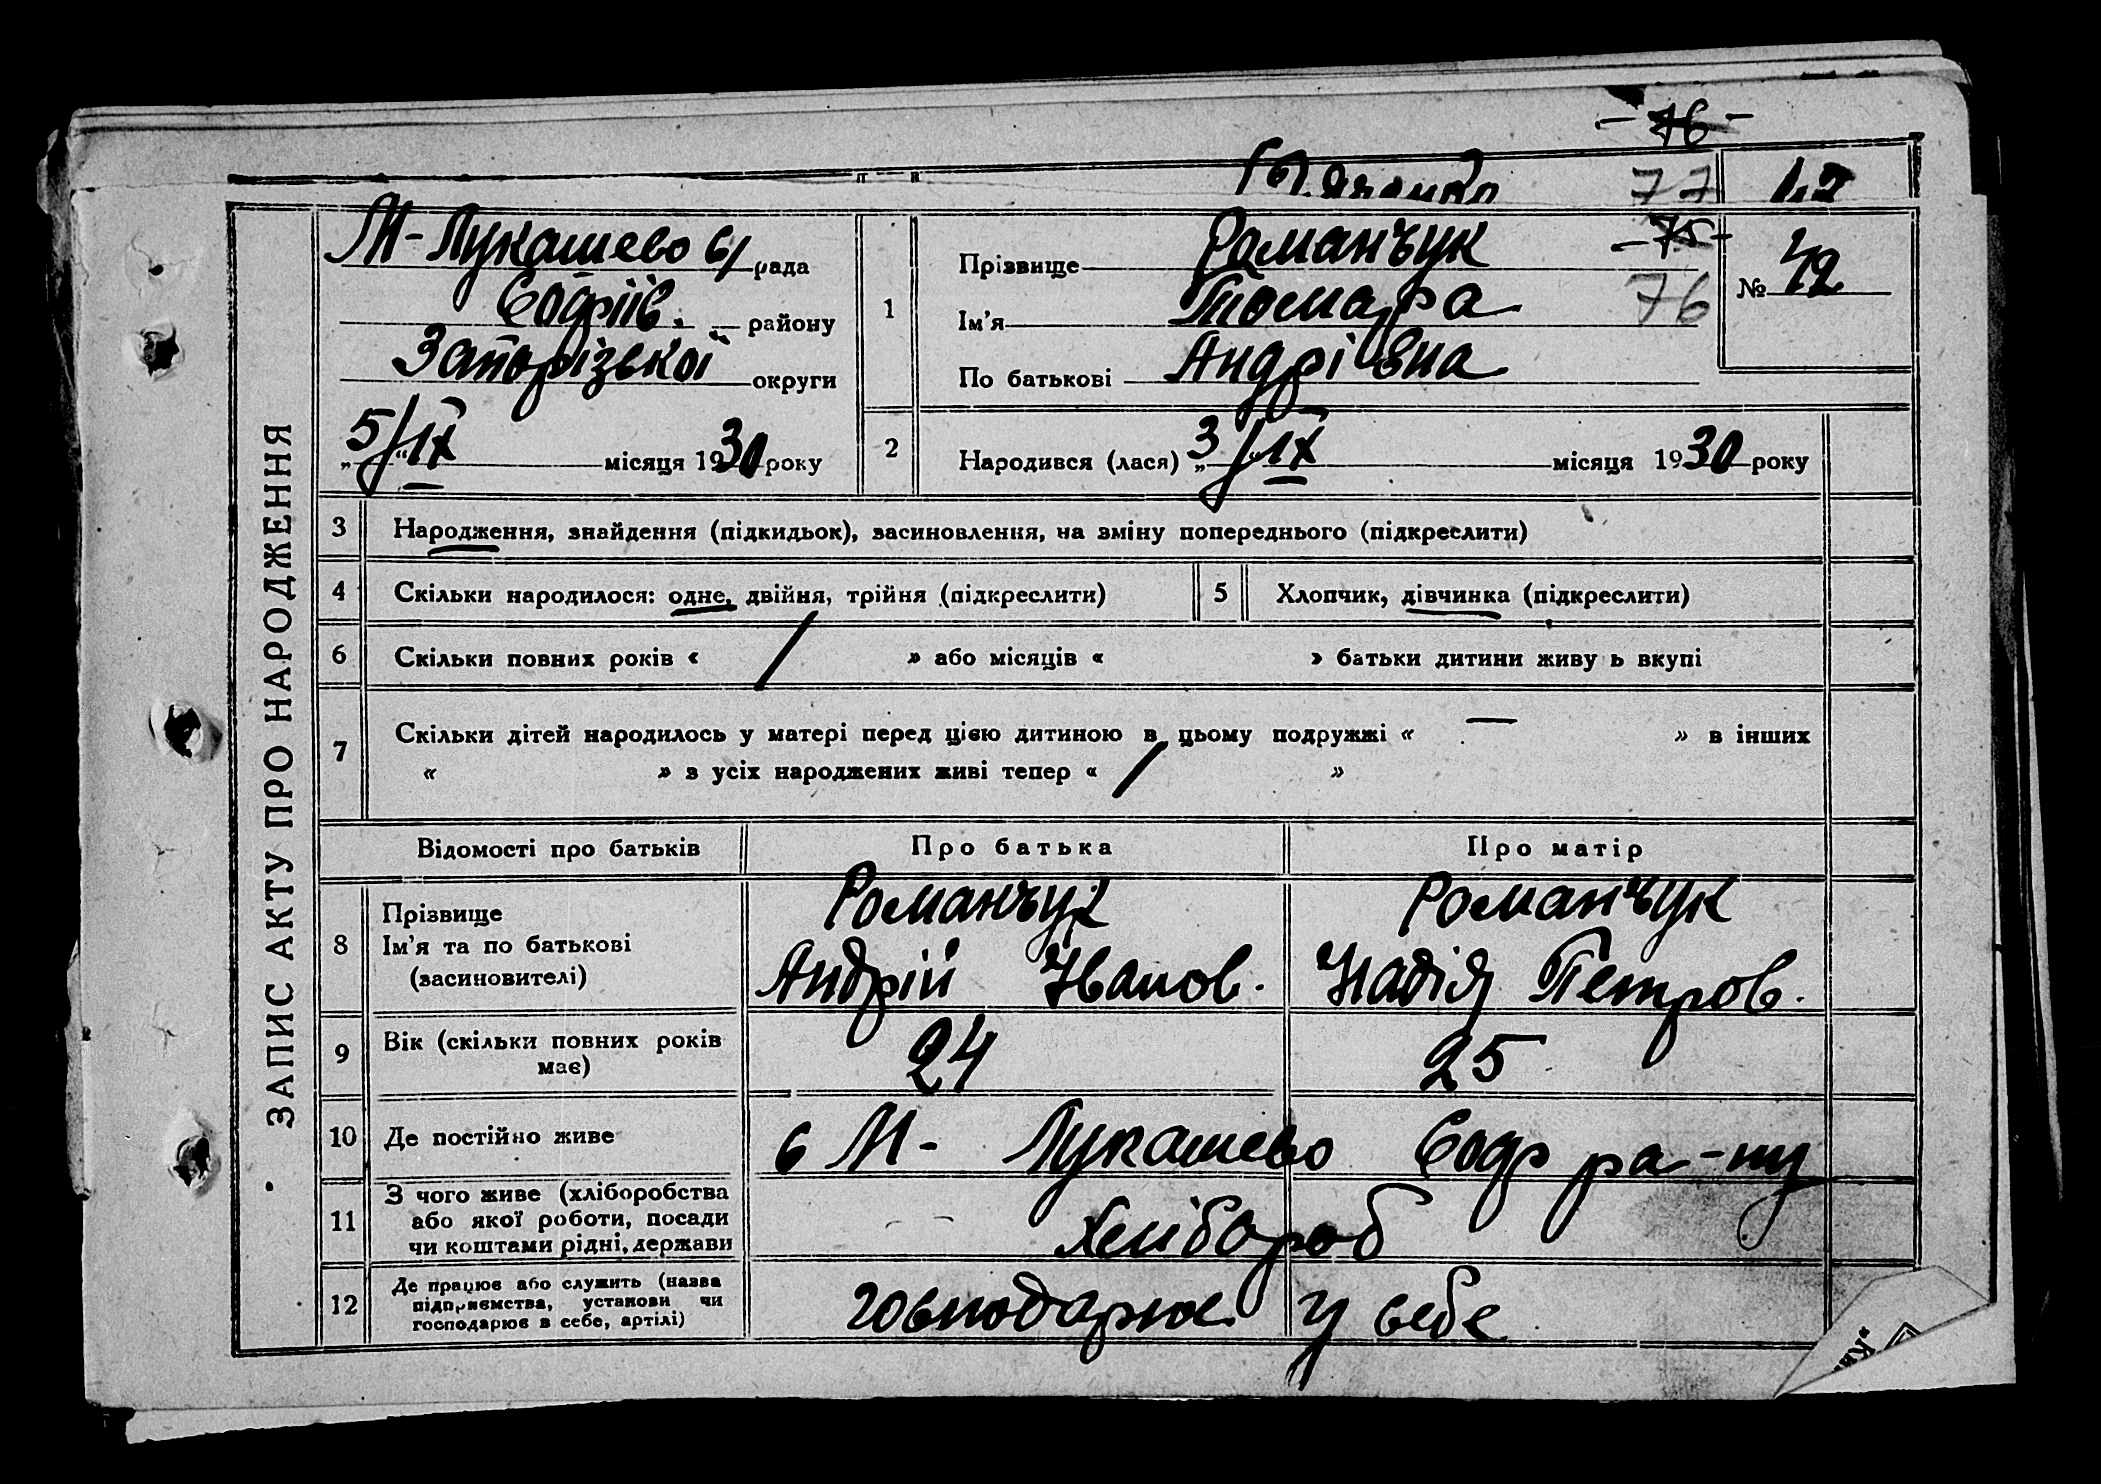 - 76 -
77
ЗАПИС АКТУ ПРО НАРОДЖЕННЯ
М-Лукашево с/рада
Софіїв. району
Запорізької округи
„5/“ІХ місяця 1930 року
1
Прізвище Романчук
Ім'я Томара
По батькові Андріівна
- 75 -
76
№ 42
2
Народився (лася) „3/“ІХ місяця 1930 року
3 Народження, знайдення (підкидьок), засиновлення, на зміну попереднього (підкреслити)
4 Скільки народилося: одне, двійня, трійня (підкреслити) 5 Хлопчик, дівчинка (підкреслити)
6 Скільки повних років « / » або місяців « » батьки дитини живу ь вкупі
7 Скільки дітей народилось у матері перед цією дитиною в цьому подружжі « — » в інших
« » з усіх народжених живі тепер « / »
Відомості про батьків Про батька Про матір
8 Прізвище Романчук Романчук
Ім'я та по батькові (засиновителі) Андрій Іванов. Надія Петров.
9 Вік (скільки повних років має) 24 25
10 Де постійно живе с М- Лукашево Софр ра-ну
11 З чого живе (хліборобства
або якої роботи, посади
чи коштами рідні, держави Хлібороб
12 Де працює або служить (назва
підприємства, установи чи
господарює в себе, артілі) госнодарює у себе